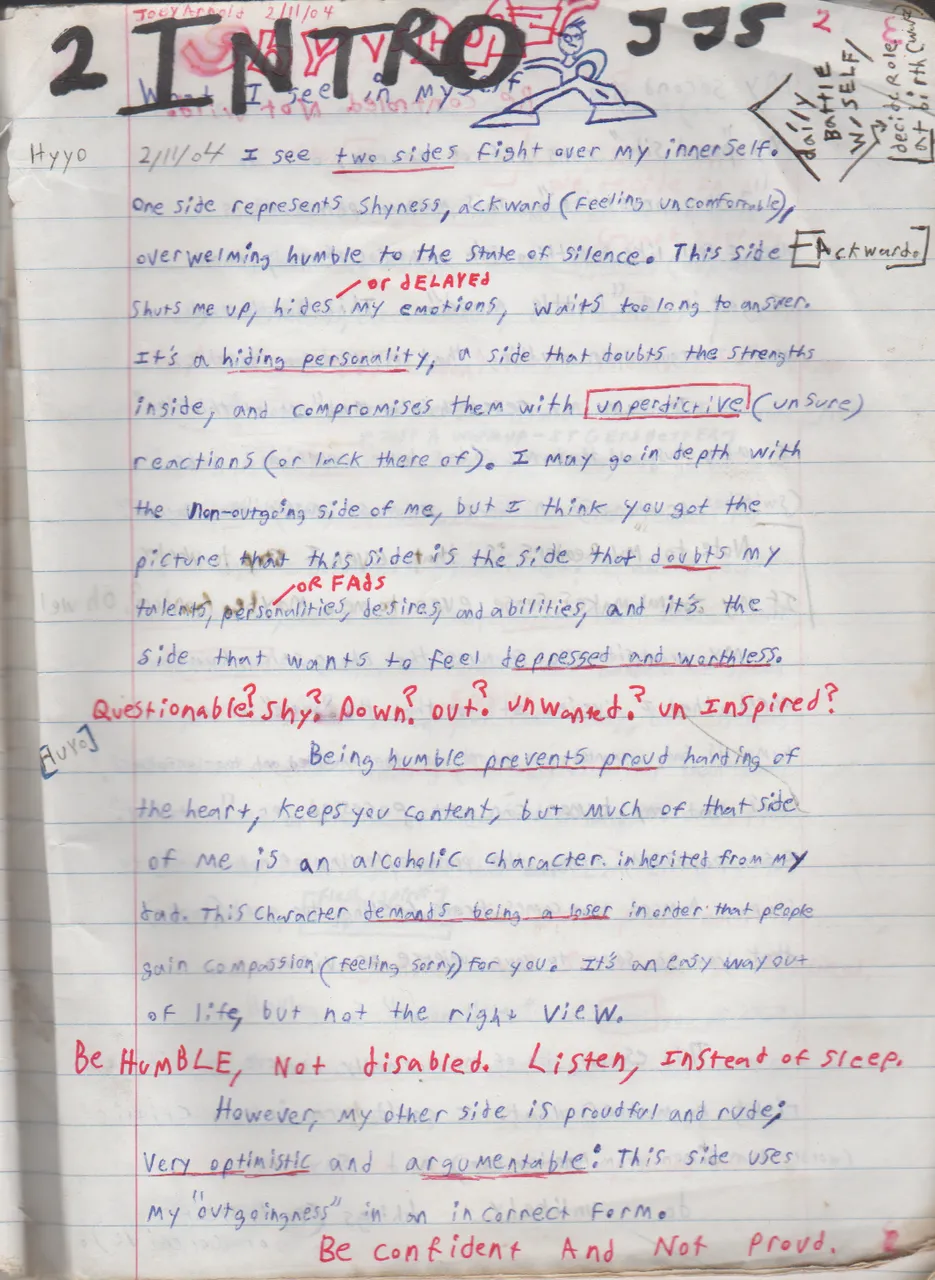 Joey Arnold 2/11/04
2 INTRO JJS 2
What I see in myself
daily
BATTLE
W/SELF
decide Role
at birth
Hyyo
2/11/04 I see two sides fight over my innerself.
One side represents shyness, ackward (feeling uncomfortable),
overwelming humble to the state of silence. This side [Ackward.]
or DELAYED
shuts me up, hides my emotions, waits too long to answer.
It's a hiding personality, a side that doubts the strengths
inside, and compromises them with unperdictive (unsure)
reactions (or lack there of). I may go in depth with
the non-outgoing side of me, but I think you got the
picture that this side is the side that doubts my
OR FADS
talents, personalities, desires, and abilities, and it's the
side that wants to feel depressed and worthless.
Questionable? Shy? Down? out? unwanted? un Inspired?
[HUYO]
Being humble prevents proud harding of
the heart, keeps you content, but much of that side
of me is an alcoholic character inherited from my
dad. This character demands being a loser in order that people
gain compassion (feeling sorry) for you. It's an easy way out
of life, but not the right view.
Be HUMBLE, Not disabled. Listen, Instead of sleep.
However, my other side is proudful and rude;
very optimistic and argumentable: This side uses
my "outgoingness" in an incorrect form.
Be confident And Not Proud. 2